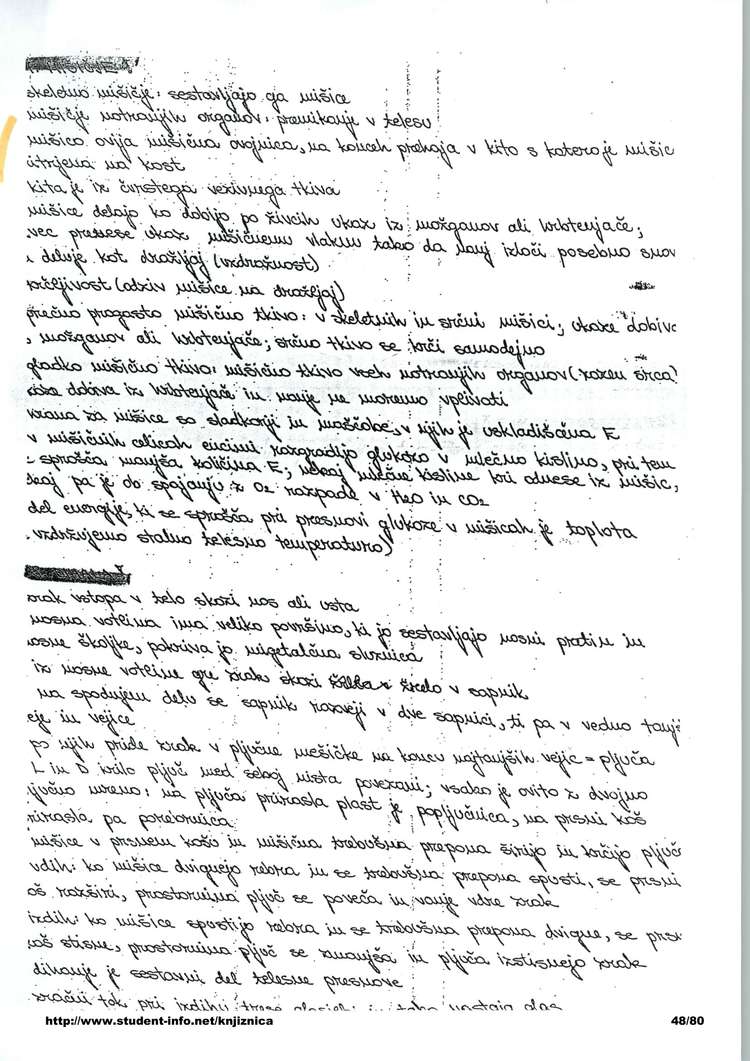 skeletno mišičje: sestavljajo ga mišice
mišičje notranjih organov: premikanje v telesu
mišico ovija mišična ovojnica, na koncih prehaja v kito s katero je mišic
utrjena na kost
kita je iz čvrstega vezivnega tkiva
mišice delajo ko dobijo po živcih ukaz iz možganov ali hrbtenjače;
vec prenese ukaz mišičnemu vlaknu tako da nanj izloči posebno snov
deluje kot dražljaj (vzdražnost)
krčljivost (odziv mišice na dražljaj)
prečno progasto mišično tkivo: v skeletnih in srčni mišici; ukaze dobiva
možganov ali hrbtenjače; srčno tkivo se krči samodejno
gladko mišično tkivo: mišičio tkivo vseh notranjih organov (razen srca)
dobiva iz hrbtenjače in nanje ne moremo vplivati
hrana za mišice so sladkorji in maščobe, v njih je uskladiščena E
v mišičnih celicah encimi razgradijo glukozo v mlečno kislino, pri tem
sprošča manjša količina E; nekaj mlečne kisline kri odnese iz mišic,
nekaj pa je do spajanju z O2 razpade v H2O in CO2
del energije, ki se sprošča pri presnovi glukoze v mišicah je toplota
vzdržujemo stalno telesno temperaturo)
zrak vstopa v telo skozi nos ali usta
nosna votlina ima veliko površino, ki jo sestavljajo nosni pretin in
nosne školjke, pokriva jo migetalčna sluznica
iz nosne votline gre zrak skozi žrelo v sapnik
na spodnjem delu se sapnik razveji v dve sapnici, ti pa v vedno tanjš
eje in vejice
po njih pride zrak v pljučne mešičke na koncu najtanjših vejic = pljuča
L in D krilo pljuč med seboj nista povezani; vsako je ovito z dvojno
ljučno mreno: na pljuča prirasla plast je popljučnica, na prsni koš
rirasla pa porebrnica
mišice v prsnem košu in mišična trebušna prepona širijo in krčijo pljuč
vdih: ko mišice dvignejo rebra in se trebušna prepona spusti, se prsni
oš razširi, prostornina pljuč se poveča in vanje vdre zrak
izdih: ko mišice spustijo rebra in se trebušna prepona dvigne, se prsn
koš stisne, prostornina pljuč se zmanjša in pljuča iztisnejo zrak
dihanje je sestavni del telesne presnove
zračni tok pri izdihu trese in tako nastaja glas
http://www.student-info.net/knjiznica
48/80